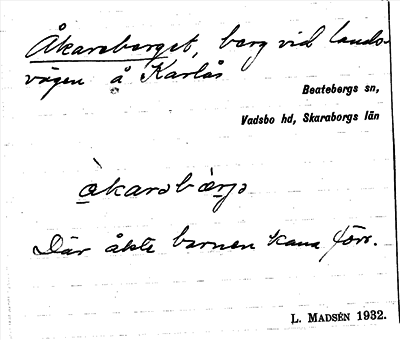 Åkareberget, berg vid lands-
vägen å Karlås
Beatebergs sn,
Vadsbo hd, Skaraborgs län
Där åkte barnen kana förr.
L. MADSÉN 1932.